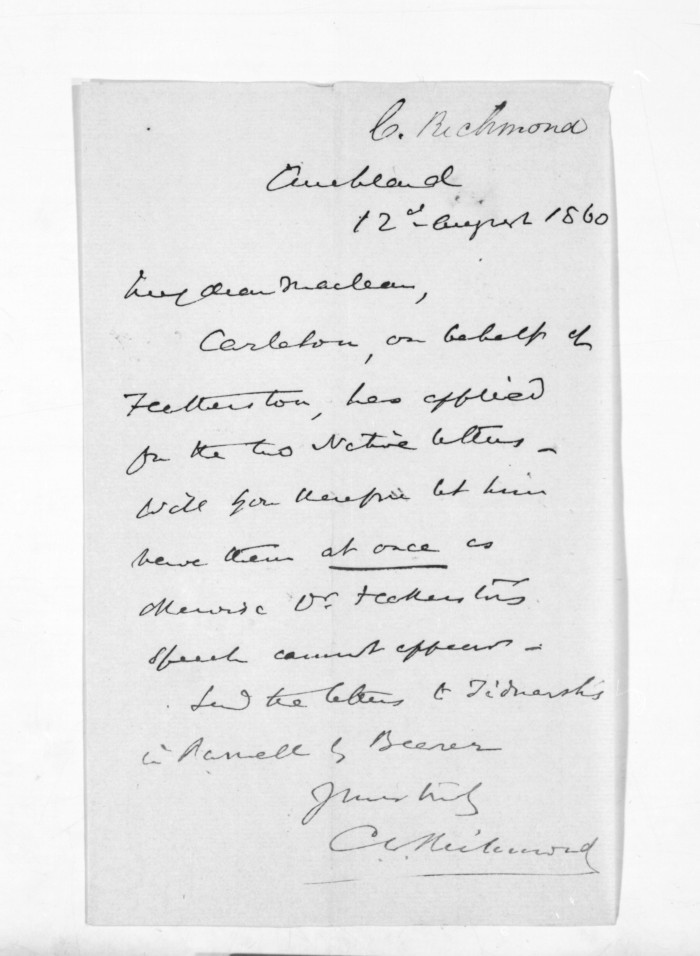 C. Richmond
Auckland
12d August 1860
My dear Maclean,
Carleton, on behalf of
Featherston, has applied
for the two Native letters –
Will you therefore let him
have them at once as
otherwise Dr. Featherston's
speech cannot appear –
Send the letters to
in Parnell by Bearer
Yours truly
C W Richmond